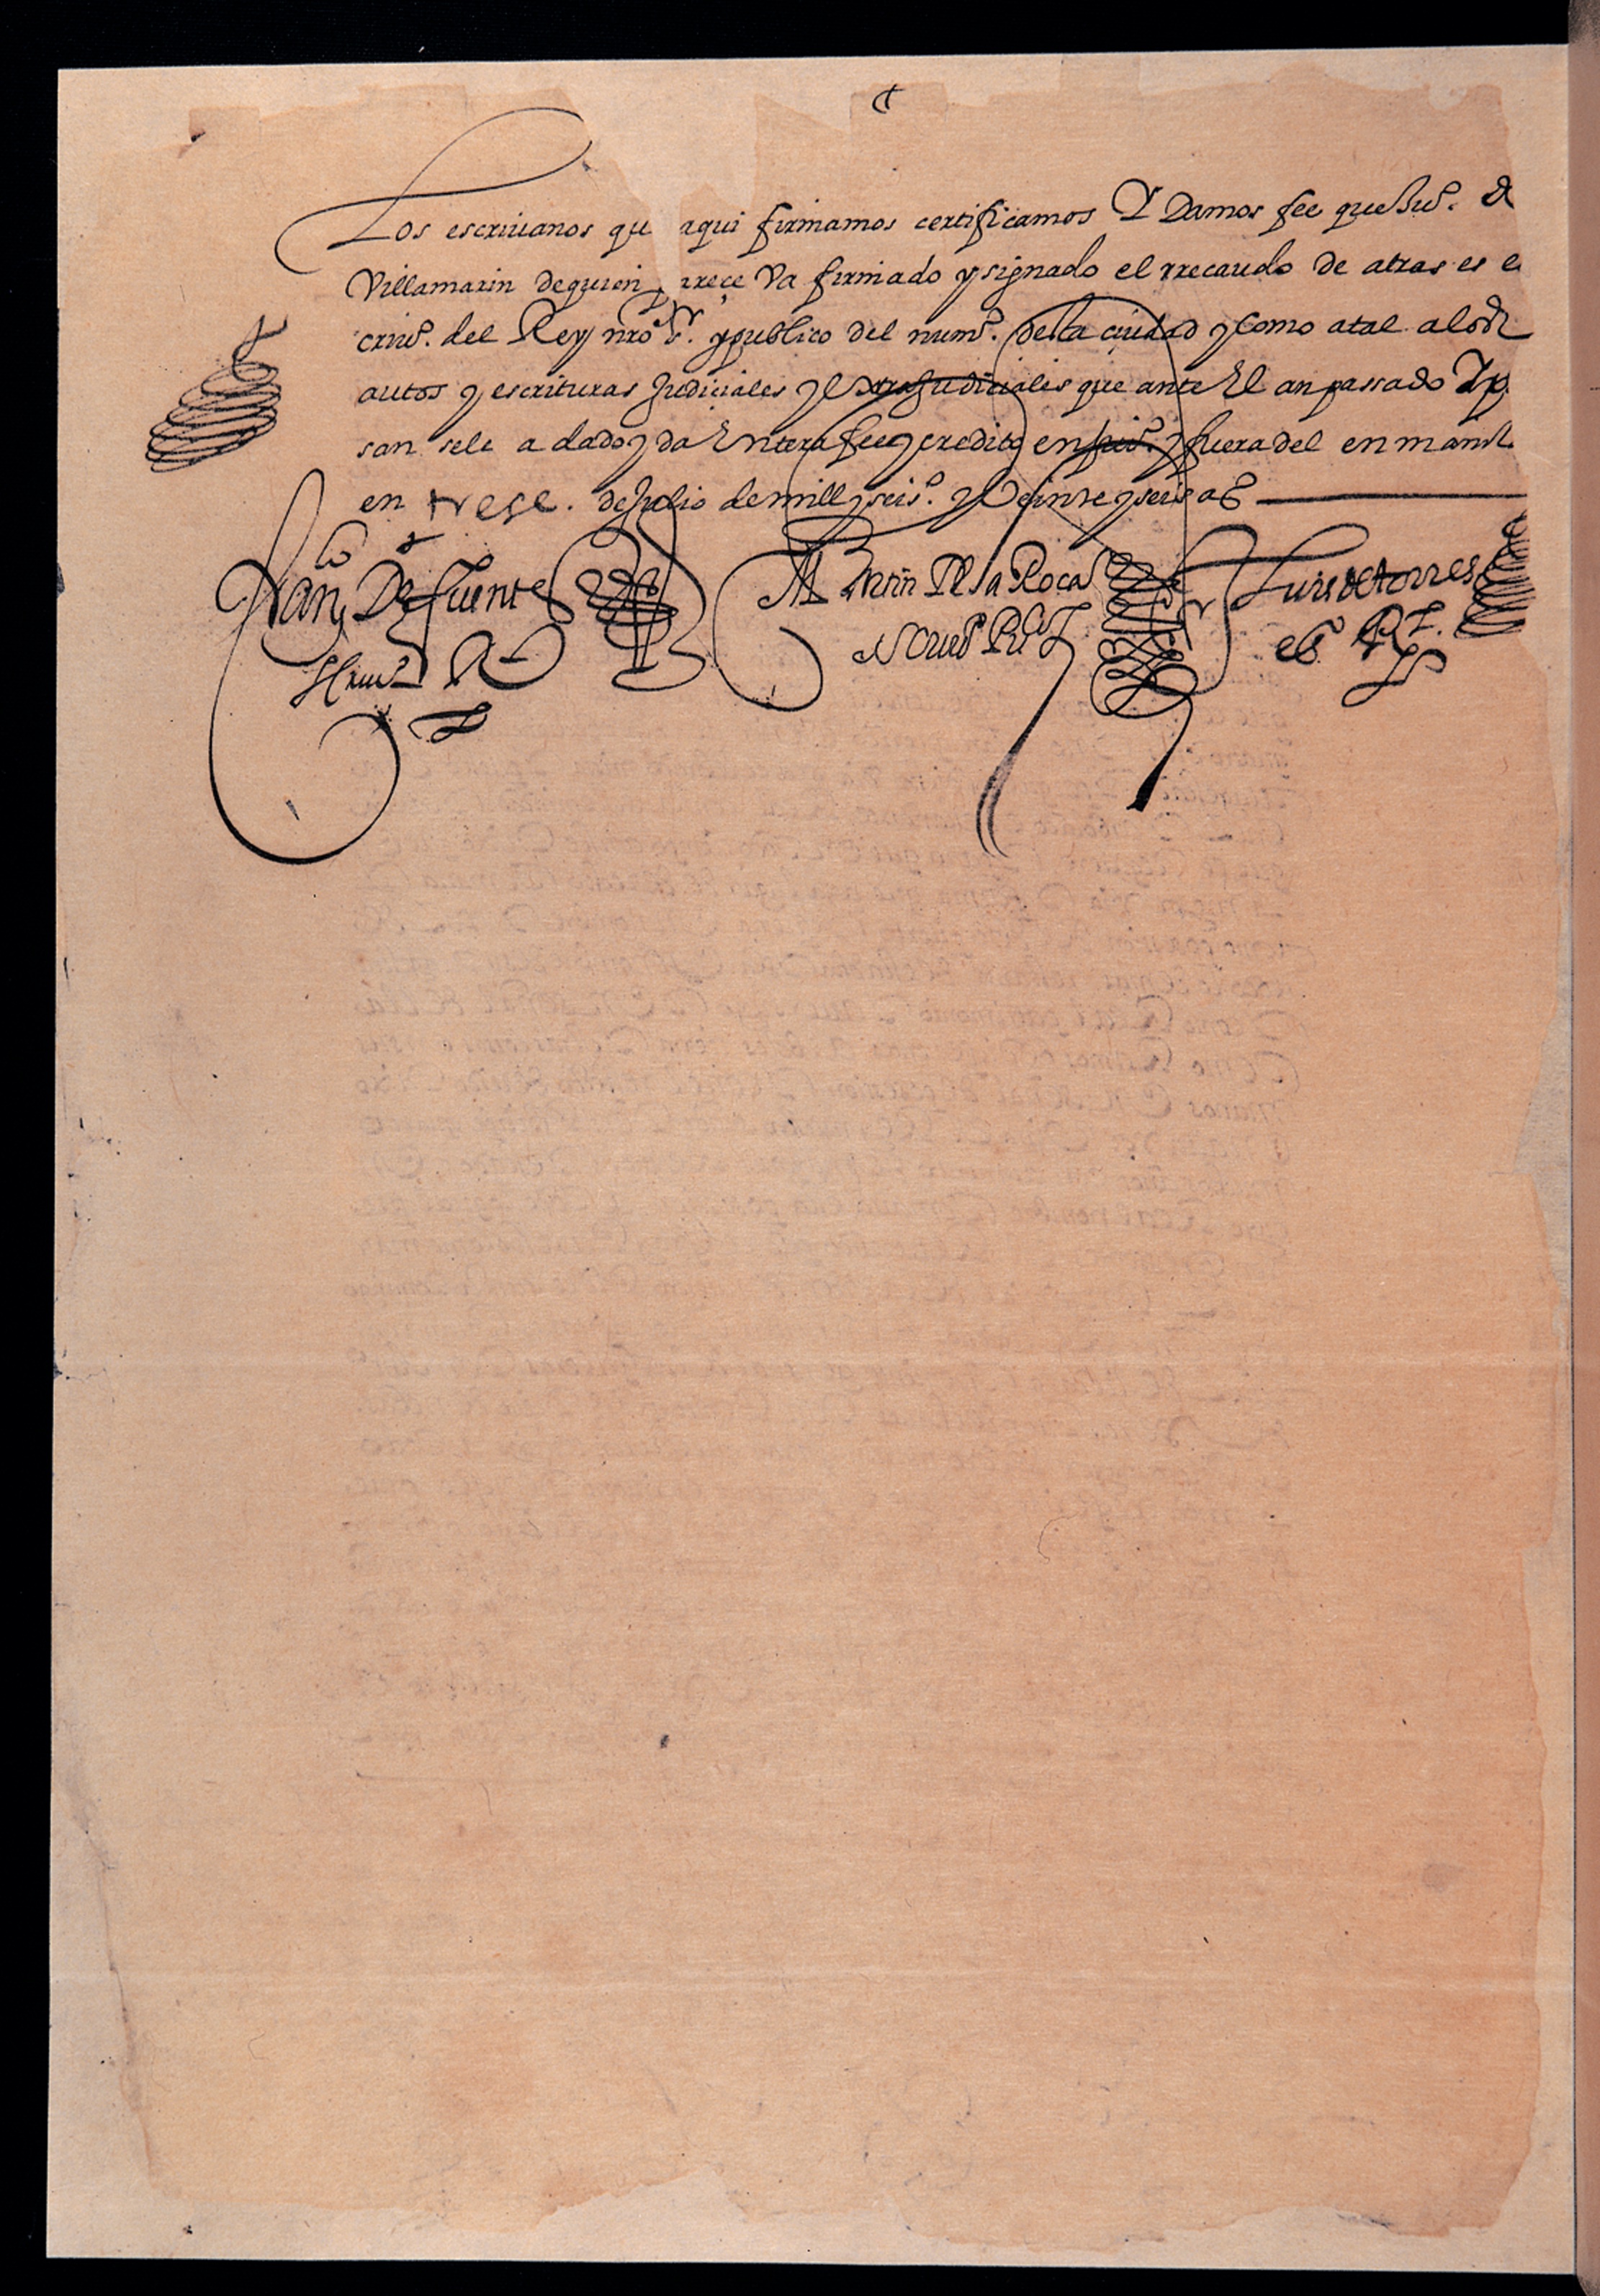 Los escriuanos qu aqui firmamos certificamos Y Damos fee que
Villamarin dequien arece Va firmado y signado el rrecaudo de atras es e
criuº. del Rey nrº sr. y publico del numº. desta ciudad y Como atal alos
autos y escrituras Judiciales y Extrajudiciales que ante El an passado Y p
san sele a dado y da Entera fee y credito en juiº. y fuera del en manil
en trese. de Julio de mill y seisº. y Veinte y seis as
Franco De fuentes Martin de la Roca Luis de torres